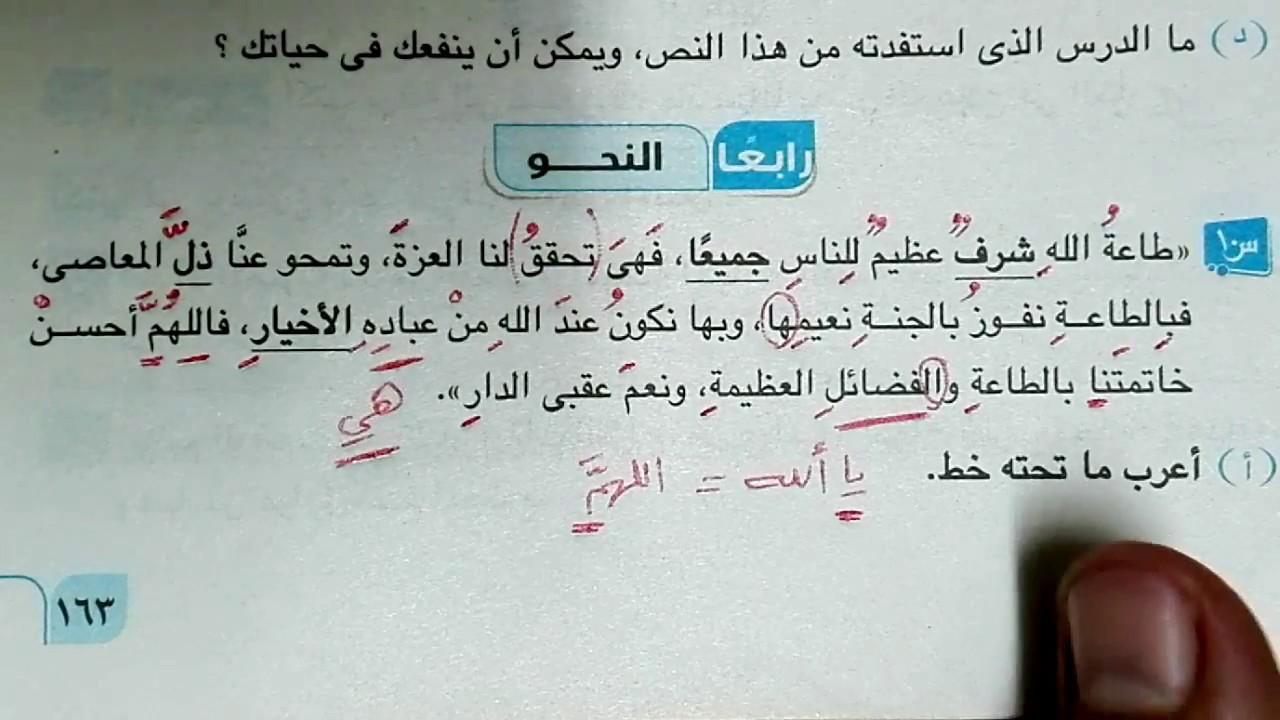 (د) ما الدرس الذى استفدته من هذا النص، ويمكن أن ينفعك فى حياتك ؟
رابعًا النحـــو
س١ «طاعةُ اللهِ شرفٌ عظيمٌ لِلناسِ جميعًا، فَهىَ تحققُ لنا العزةَ، وتمحو عنَّا ذلَّ المعاصى،
فبِالطاعـةِ نفـوزُ بالجنـةِ نعيمِها، وبها نكونُ عندَ اللهِ مِنْ عبادِهِ الأخيارِ، فاللهُمَّ أحسـنْ
خاتمتَنا بالطاعةِ والفضائلِ العظيمةِ، ونعمَ عقبى الدارِ».
هي
(أ) أعرب ما تحته خط.
يا ألله = اللهمَّ
١٦٣